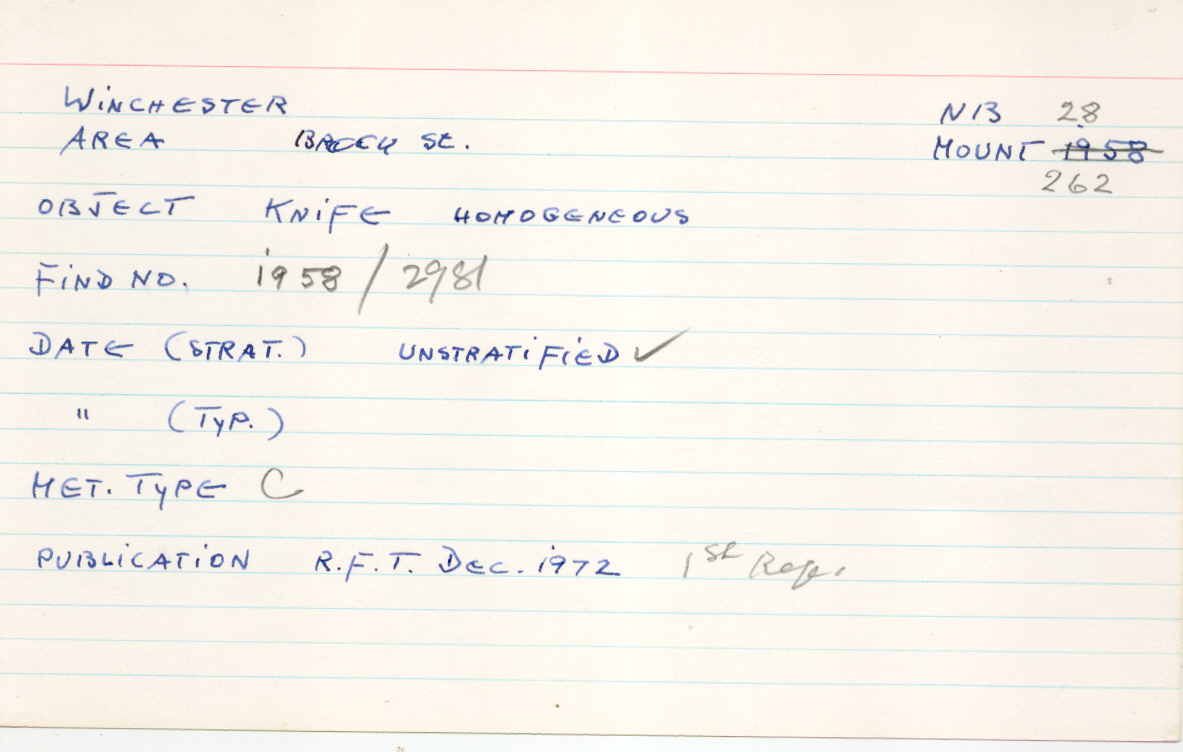 WINCHESTER
AREA BROOK St.
NB 28
MOUNT 1958
262
OBJECT KNIFE HOMOGENEOUS
FIND NO. 1958 / 2981
DATE (STRAT.) UNSTRATIFIED ✓
" (TYP.)
MET. TYPE C
PUBLICATION R.F.T. DEC. 1972 1st